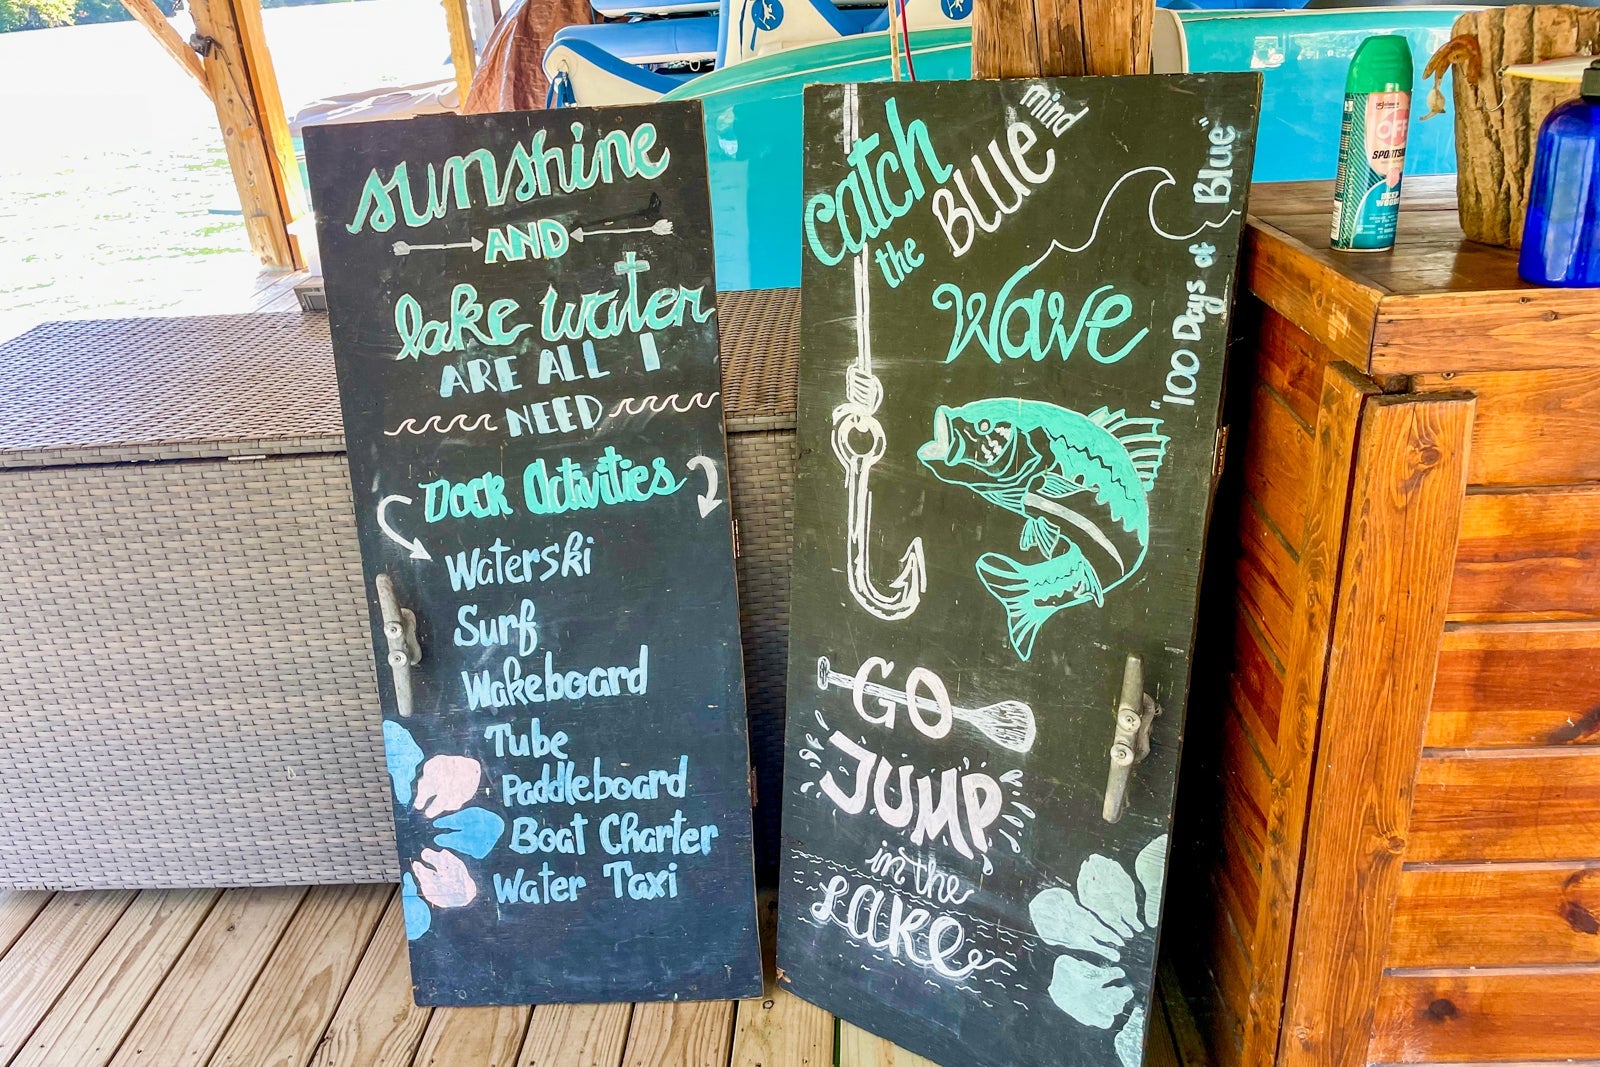 sunshine
AND
lake water
ARE ALL I
NEED
Dock Activities
Waterski
Surf
Wakeboard
Tube
Paddleboard
Boat Charter
Water Taxi
catch
the
BLUE
mind
wave
"100 Days of Blue"
GO
JUMP
in the
LAKE
OFF!
SPORTSMEN
DEEP
WOODS